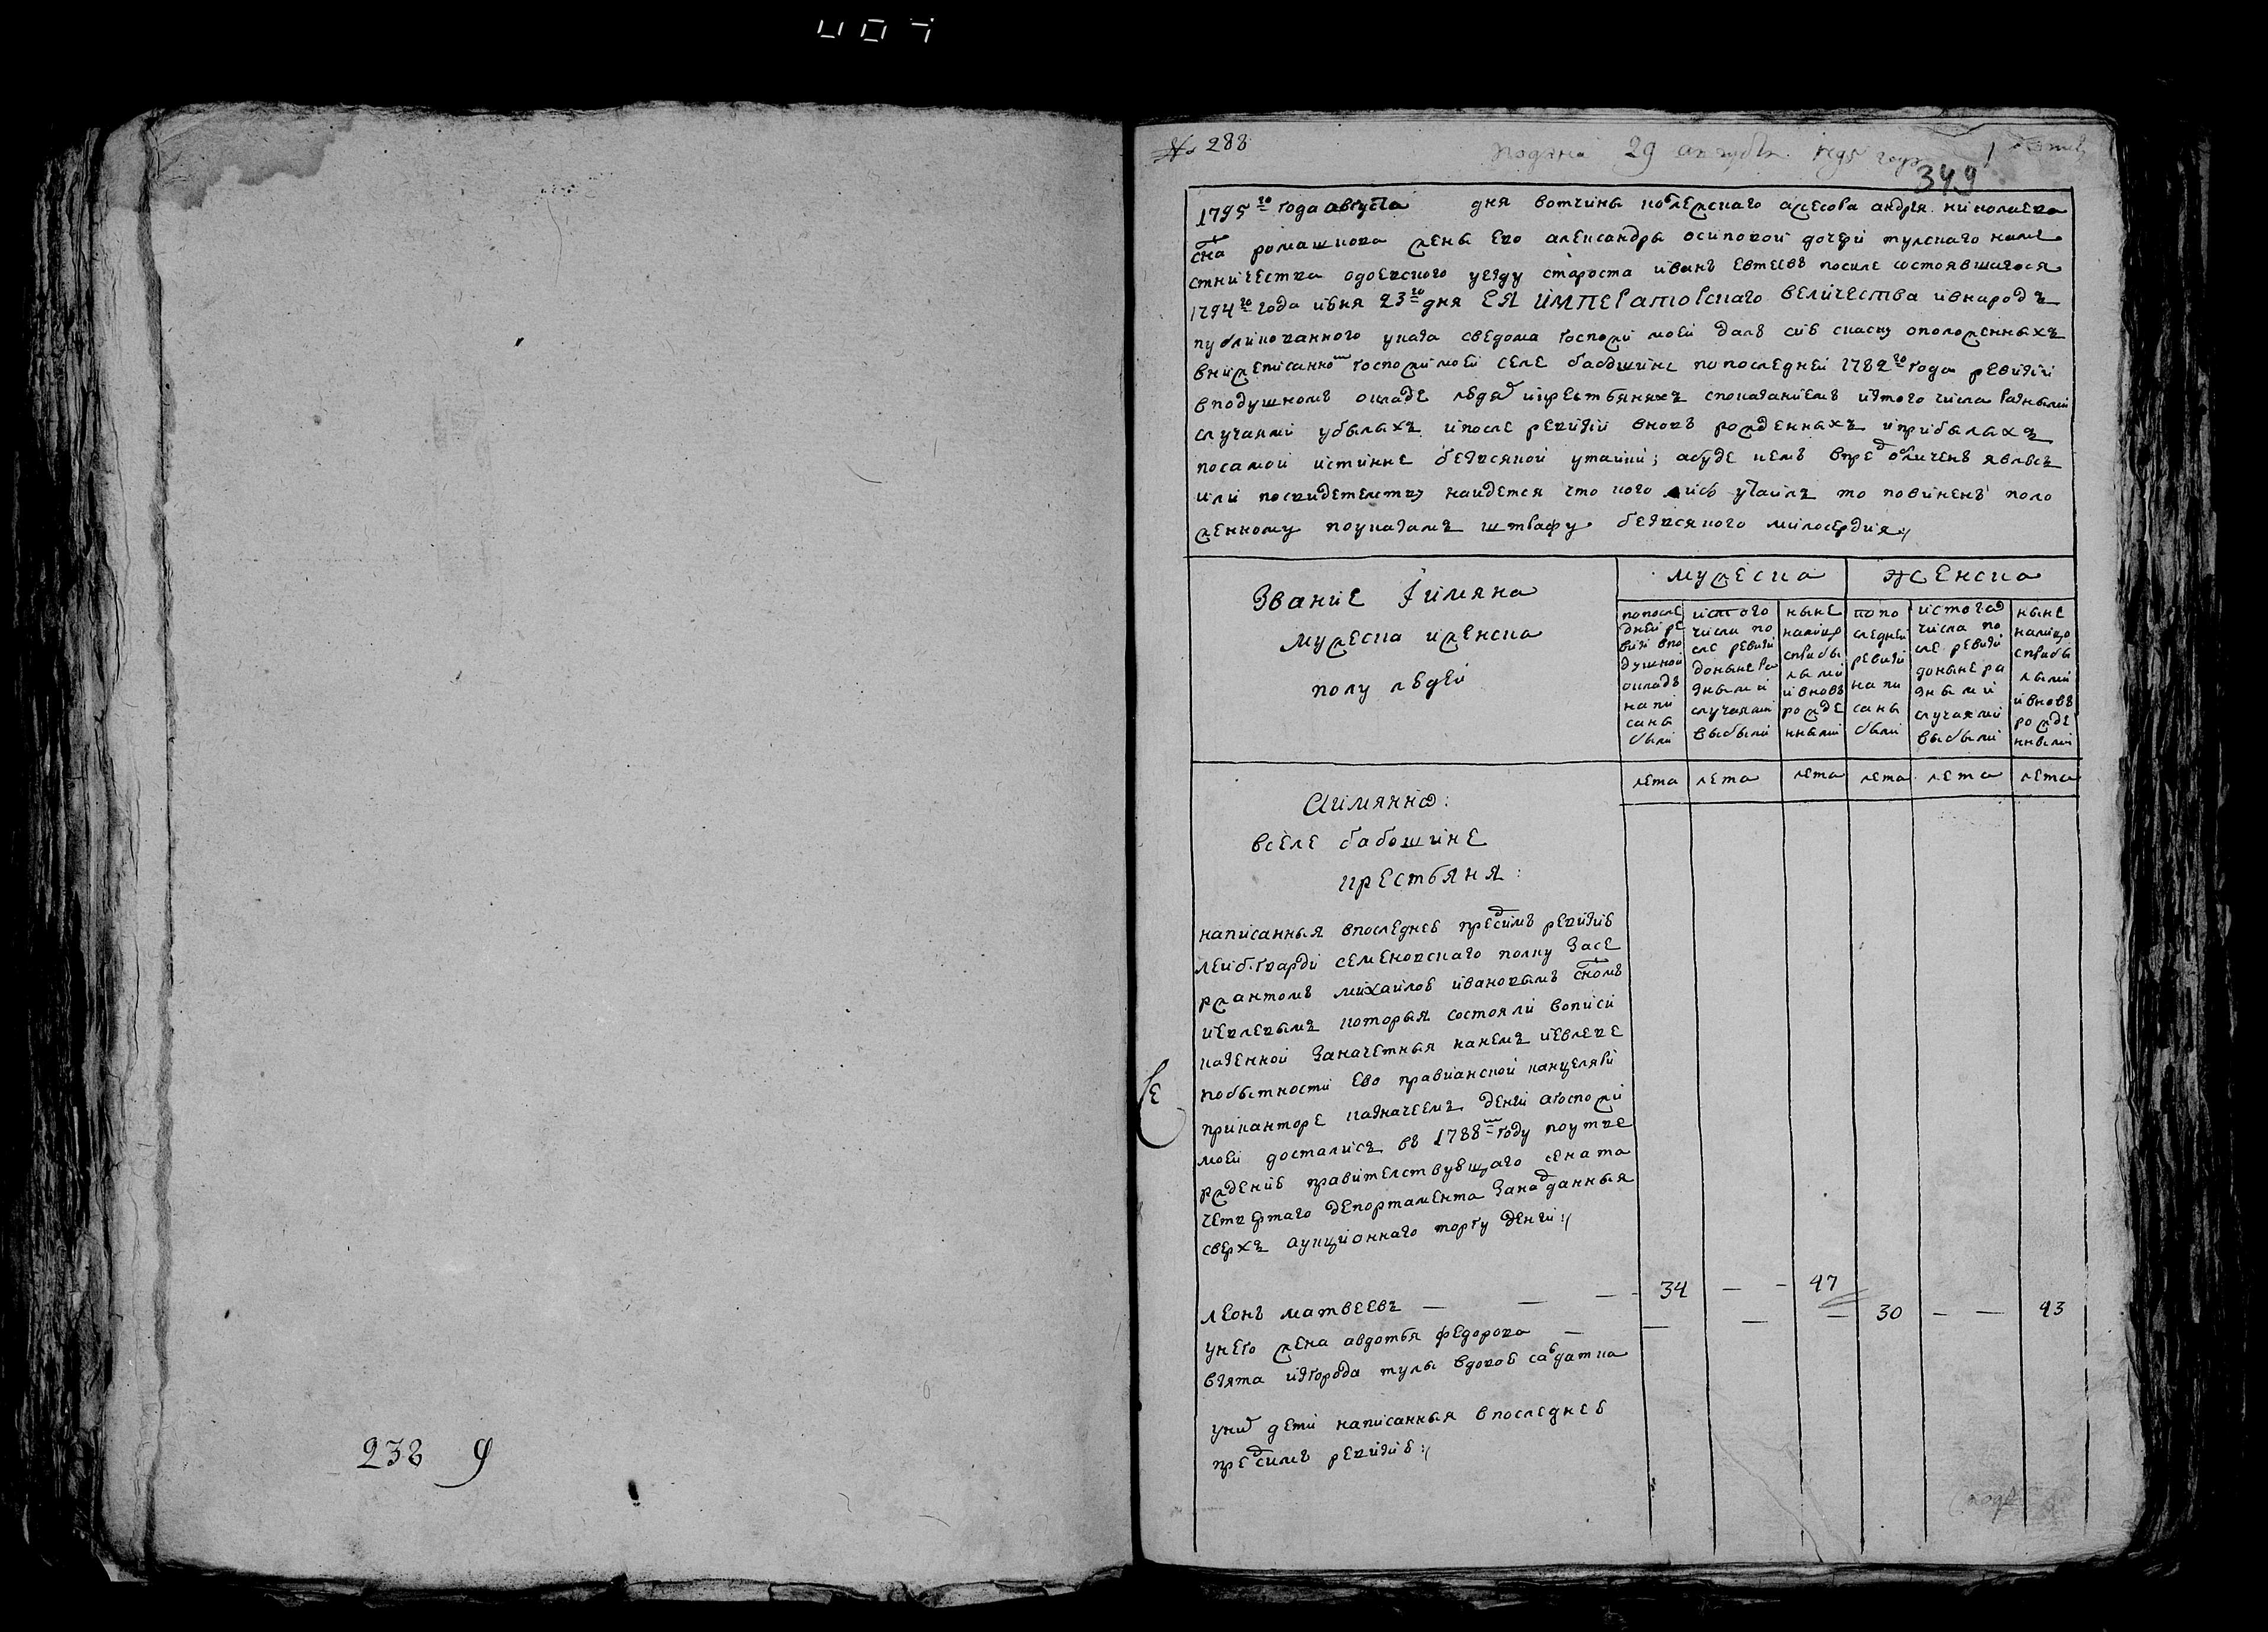 238 9
№ 288
подана 29 августа 1795 году
349
1795го года августа дня вотчины колежскаго асесора андрея николаева
сна ромашкова жены ево александры осиповой дочери тулскаго наме
стничества одоевского уезду староста иванъ евтеевъ посиле состоявшагося
1794го года июня 23го дня ЕЯ ИМПЕРАТОРСКАГО ВЕЛИЧЕСТВА ивнародъ
публикованного указа сведома госпожи моей далъ сию скаску оположенныхъ
внижеписанном госпожи моей селе бабошине попоследней 1782го года ревизии
вподушномъ окладе людях икрестьяняхъ споказаниемъ изтого числа разными
случаями убылыхъ ипосле ревизии вновь рожденныхъ иприбылыхъ
посамой истинне безвсякой утайки; абуде чемъ впредь обличенъ явлюсь
или посвидетелству найдется что кого утаилъ то повиненъ поло
женному поуказамъ штрафу безвсякого милосердия
Звание Иимяна
мужеска иженска
полу людей
мужеска
женска
попосле
дней ре
визи впо
душной
окладъ
напи
саны
были
истого
числа по
сле ревизи
доныне ра
зными
случаями
выбыли
ныне
налицо
сприбы
лыми
ивновь
рожде
нными
попо
следней
ревизи
напи
саны
были
истого
числа по
сле ревизи
доныне ра
зными
случаями
выбыли
ныне
налицо
сприбы
лыми
ивновь
рожде
нными
лета лета лета лета лета лета
Аимянно:
вселе бабошине
крестьяня:
написанныя впоследнею предсимъ ревизию
лейб.гварди семеновскаго полку Засе
ржантомъ михайлою ивановымъ сномъ
иевлевымъ которыя состояли вописи
казенной Заначетныя нанемъ иевлеве
побытности Ево правианской канцеляри
приканторе казначеемъ денги агоспожи
моей досталисъ въ 1788м году поутве
рждению правителствующаго сената
четвертаго депортамента Занаданныя
сверхъ аукционнаго торгу денги
леонъ матвеевъ — — — 34 — — 47
унего жена авдотья федорова — — — — 30 — — 43
взята изгорода тулы вдовою салдатка
них дети написанныя впоследнею
предсимъ ревизию